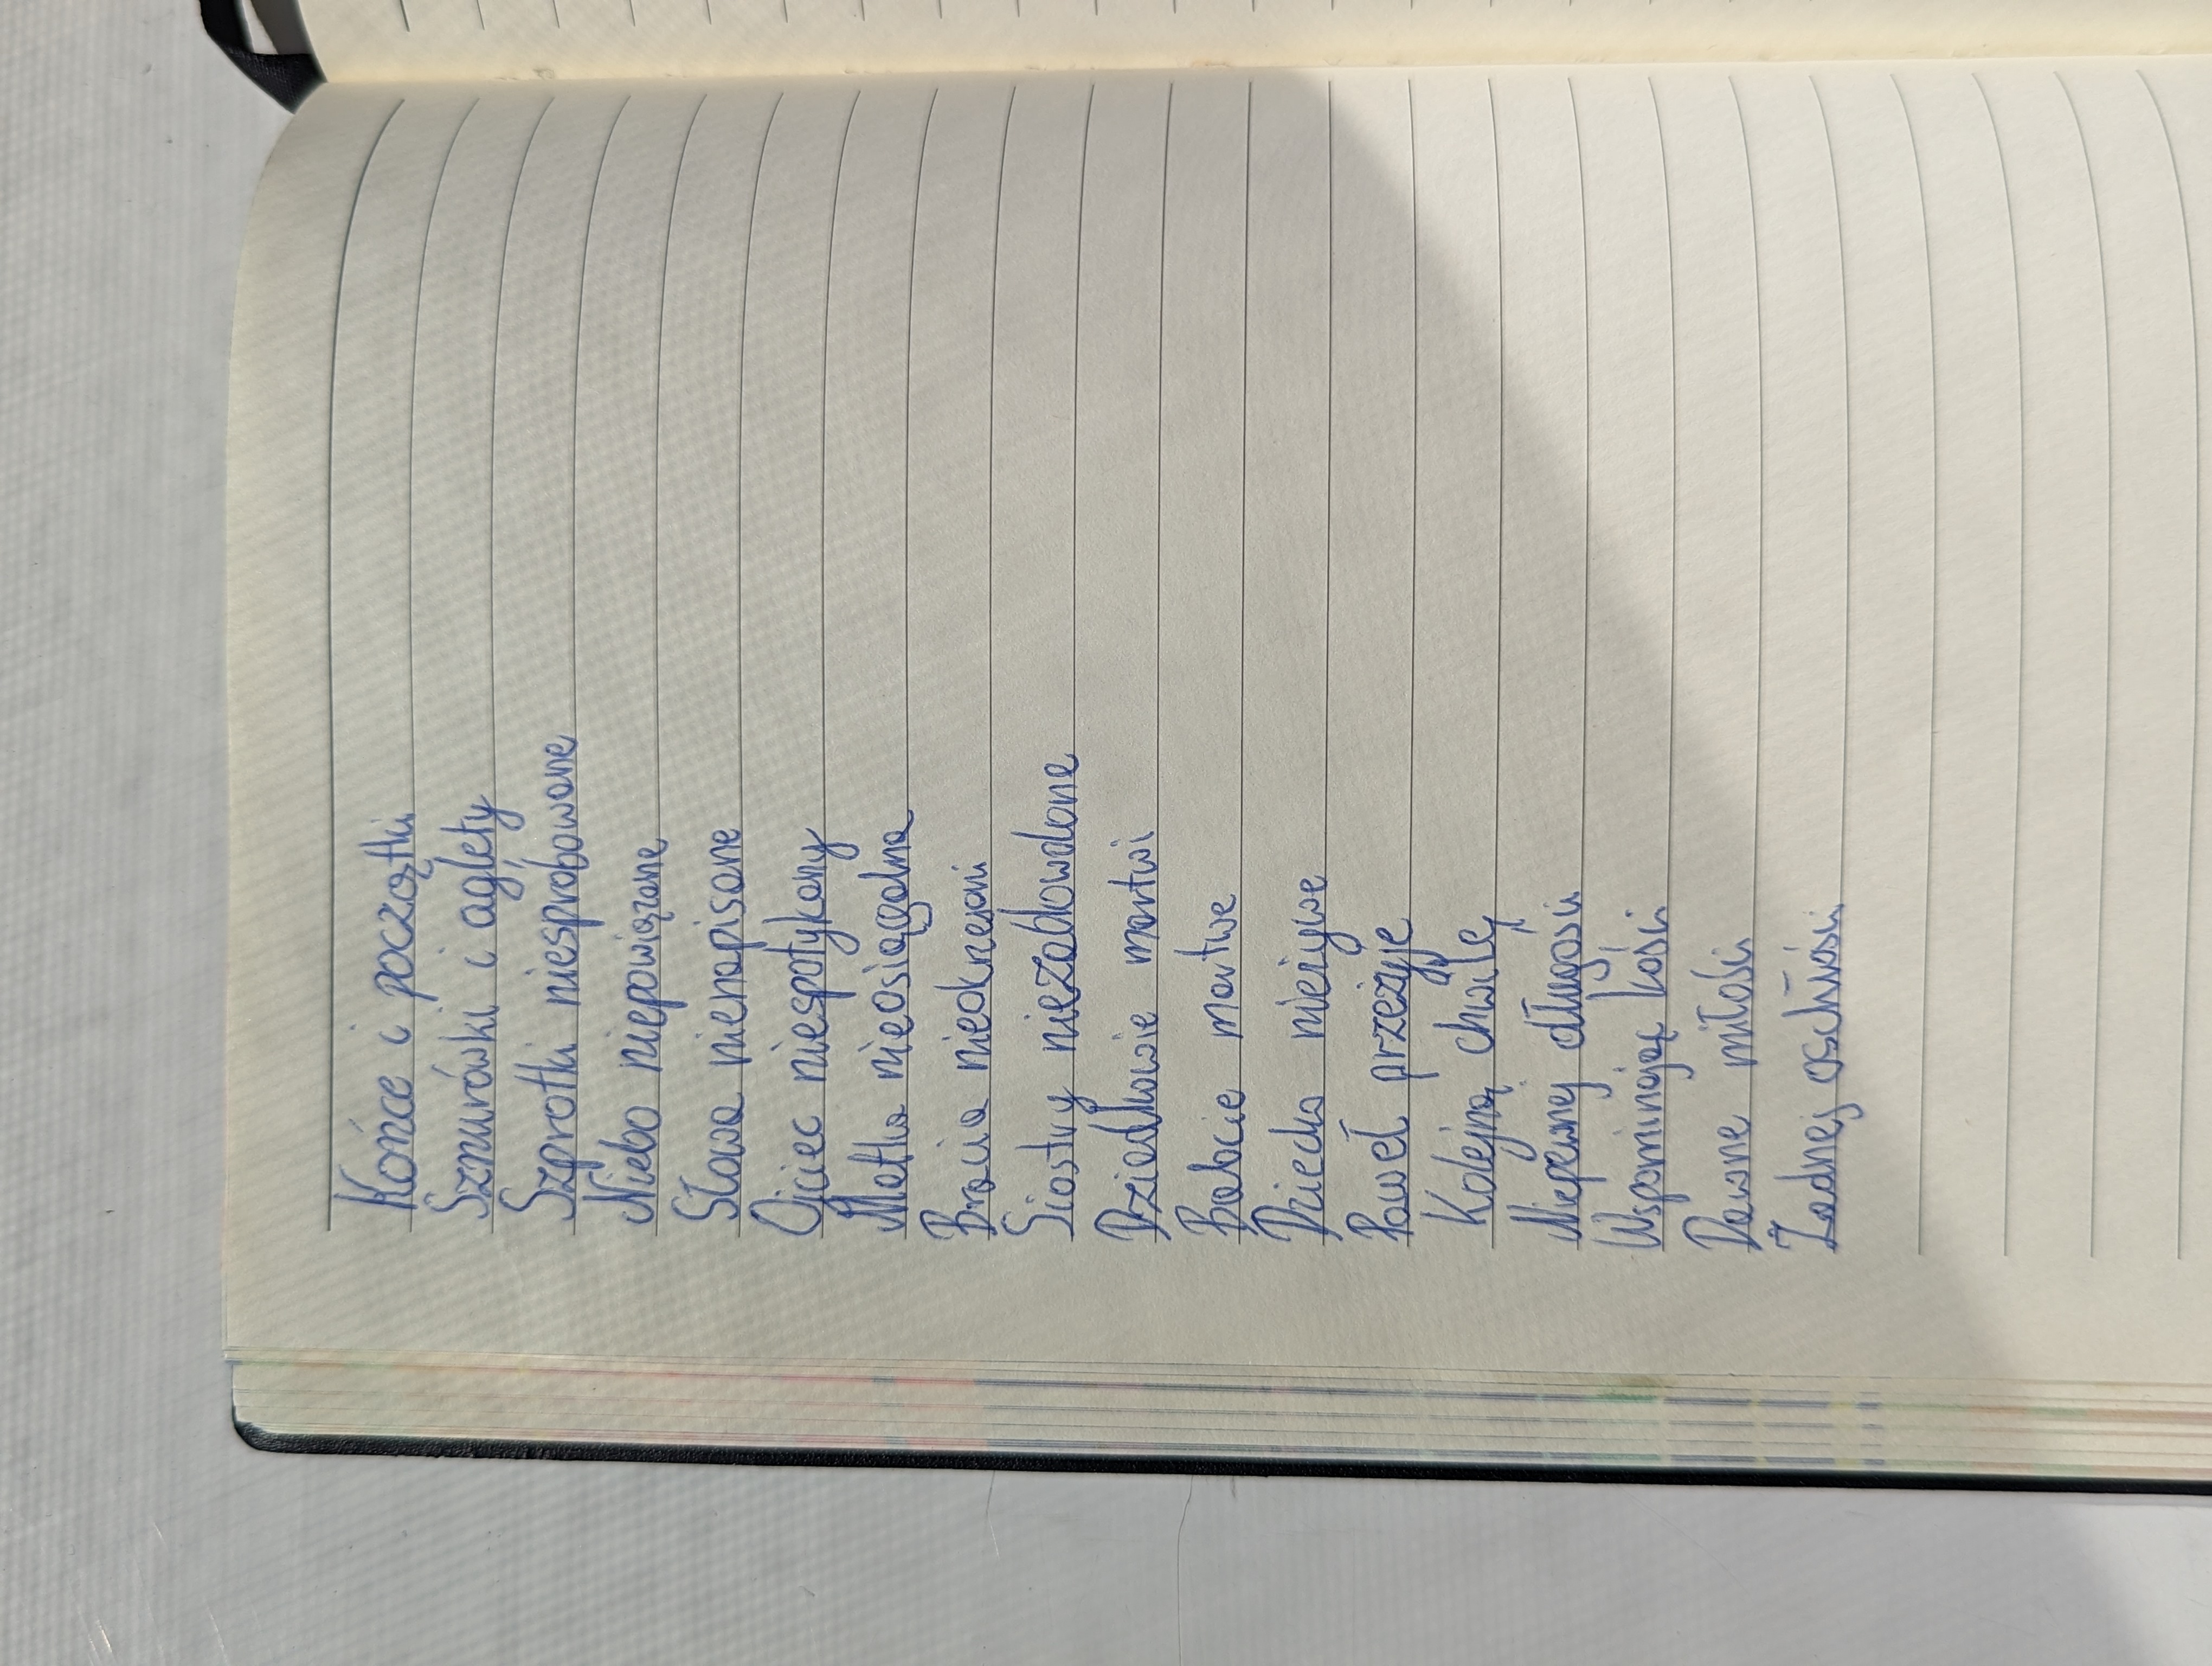 Końce i początki
Sznurówki i aglety
Szprotki niespróbowane
Niebo niepowiązane
Słowa nienapisane
Ojciec niespotykany
Matka nieosiągalna
Bracia
Siostry niezablowalone
Dziadkowie martwi
Babcie martwe
Dziecko nieżywe
Paweł przeżyje
Kolejną chwilę
Niepewnej długości
Wspominając kości
Dawne miłości
Żadnej oschłości